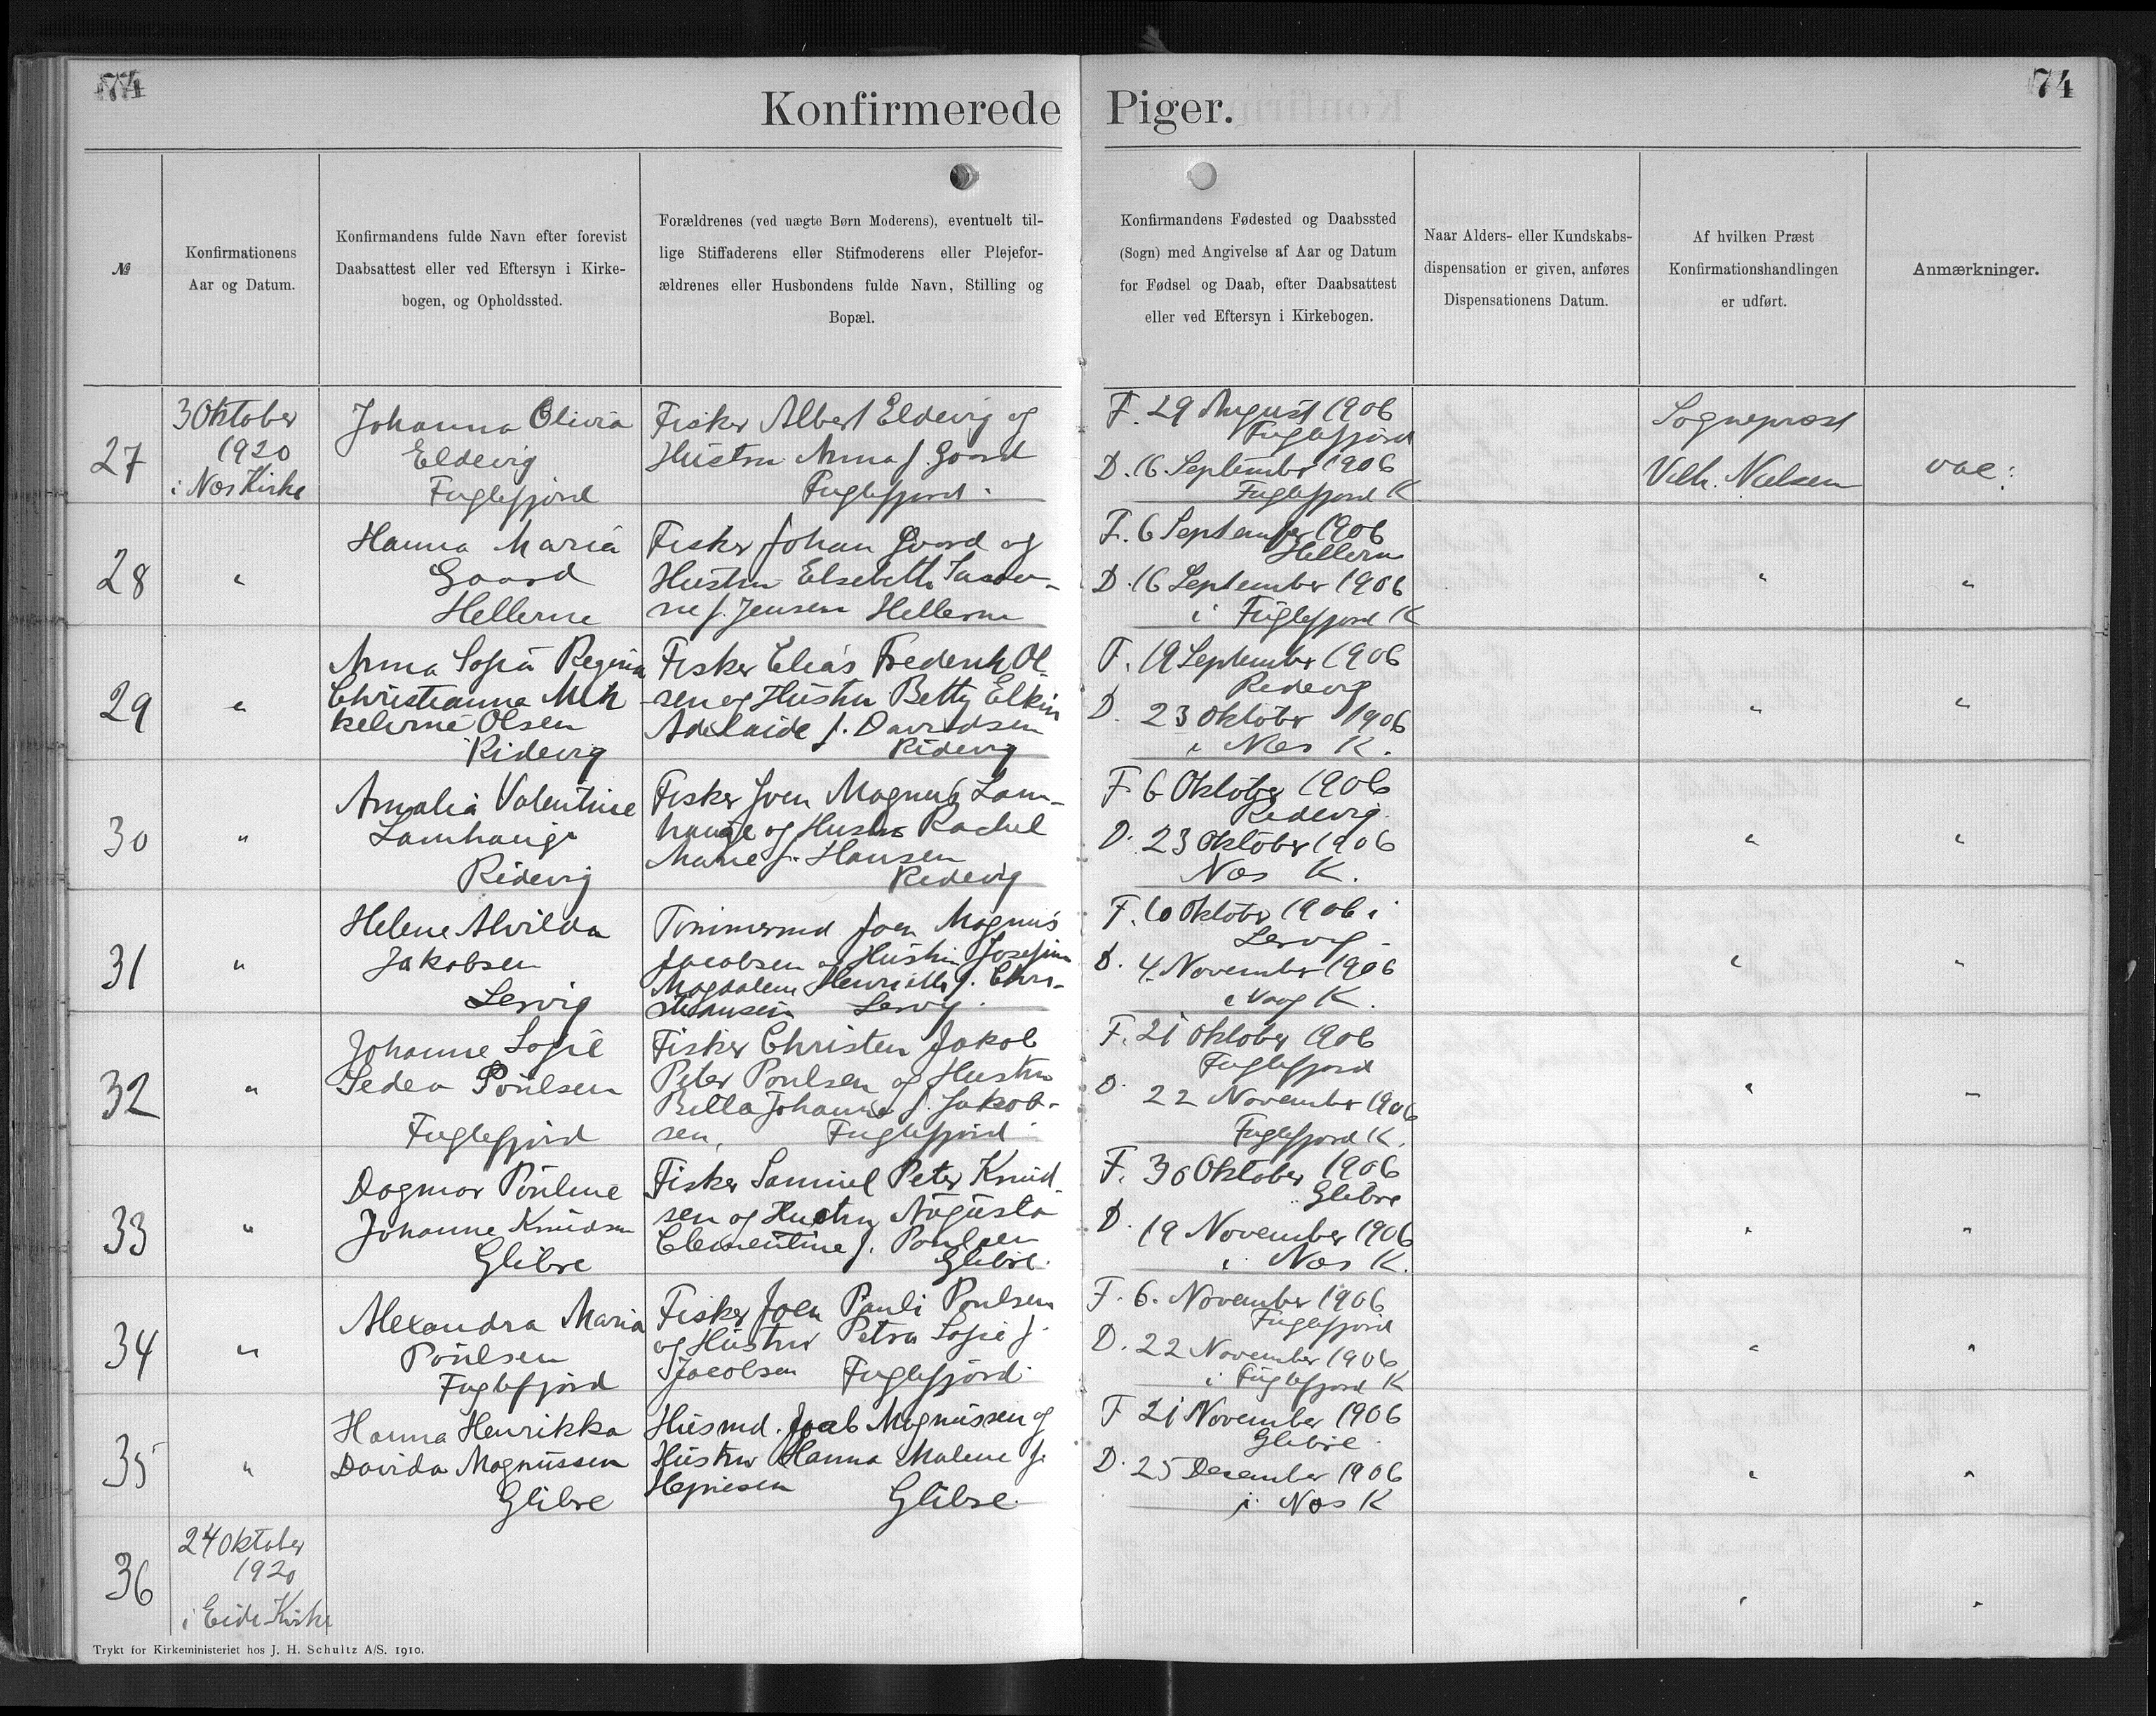 74
74
Konfirmerede Piger.
№
Konfirmationens
Aar og Datum.
Konfirmandens fulde Navn efter forevist
Daabsattest eller ved Eftersyn i Kirke-
bogen, og Opholdssted.
Forældrenes (ved uægte Børn Moderens), eventuelt til-
lige Stiffaderens eller Stifmoderens eller Plejefor-
ældrenes eller Husbondens fulde Navn, Stilling og
Bopæl.
Konfirmandens Fødested og Daabssted
(Sogn) med Angivelse af Aar og Datum
for Fødsel og Daab, efter Daabsattest
eller ved Eftersyn i Kirkebogen.
Naar Alders- eller Kundskabs-
dispensation er given, anføres
Dispensationens Datum.
Af hvilken Præst
Konfirmationshandlingen
er udført.
Anmærkninger.
27
3 Oktober
1920
i Nes Kirke
Johanna Olivia
Eldevig
Fuglefjord
Fisker Albert Eldevig og
Hustru Anna f. Gaard
Fuglefjord
F. 29 August 1906
Fuglefjord
D. 16 September 1906
Fuglefjord K
Sognepræst
Vilh. Nielsen
vac:
28
"
Hanna Maria
Gaard
Hellerne
Fisker Johan Gaard og
Hustru Elsebeth
f. Jensen Hellerne
F. 6 September 1906
Hellerne
D. 16 September 1906
i Fuglefjord K
"
"
29
"
Anna Sofia Regina
Christianna Mik
keline Olsen
Ridevig
Fisker Elias Frederik Ol-
sen og Hustru Betty Elkin
Adelaide f. Davidsen
Ridevig
F. 19 September 1906
Redevig
D. 23 Oktober 1906
i Nes K.
"
"
30
"
Amalia Valentine
Lamhauge
Ridevig
Fisker Joen Magnus Lam-
hauge og Hustru Rachel
Marie f. Hansen
Redevig
F 6 Oktober 1906
Redevig.
D. 23 Oktober 1906
Nes K.
"
"
31
"
Helene Alvilda
Jakobsen
Lervig
Tømmermd Joen Magnus
Jacobsen og Hustru Josefine
Magdalene Henriette f. Chri-
stiansen Lervig.
F. 10 Oktober 1906 i
Lervig
D. 4 November 1906
i Vaag K.
"
"
32
"
Johanne Sofie
Sedea Poulsen
Fuglefjord
Fisker Christen Jakob
Peter Poulsen og Hustru
Billa Johanne f. Jakob-
sen, Fuglefjord
F. 21 Oktober 1906
Fuglefjord
D. 22 November 1906
Fuglefjord K.
"
"
33
"
Dagmar Pouline
Johanne Knudsen
Glibre
Fisker Samuel Peter Knud-
sen og Hustru Augusta
Clementine f. Poulsen
Glibre.
F. 30 Oktober 1906
Glibre
D. 19 November 1906
i Nes K.
"
"
34
"
Alexandra Maria
Poulsen
Fuglefjord
Fisker Joen Pauli Poulsen
og Hustru Petra Sofie f.
Jacobsen Fuglefjord
F. 6. November 1906
Fuglefjord
D. 22 November 1906
i Fuglefjord K
"
"
35
"
Hanna Henrikka
Davida Magnussen
Glibre
Husmd. Joab Magnussen og
Hustru Hanna Malene f.
Glibre.
F 21 November 1906
Glibre.
D. 25 December 1906
i Nes K
"
"
36
24 Oktober
1920
i Eide Kirke
"
"
Trykt for Kirkeministeriet hos J. H. Schultz A/S. 1910.